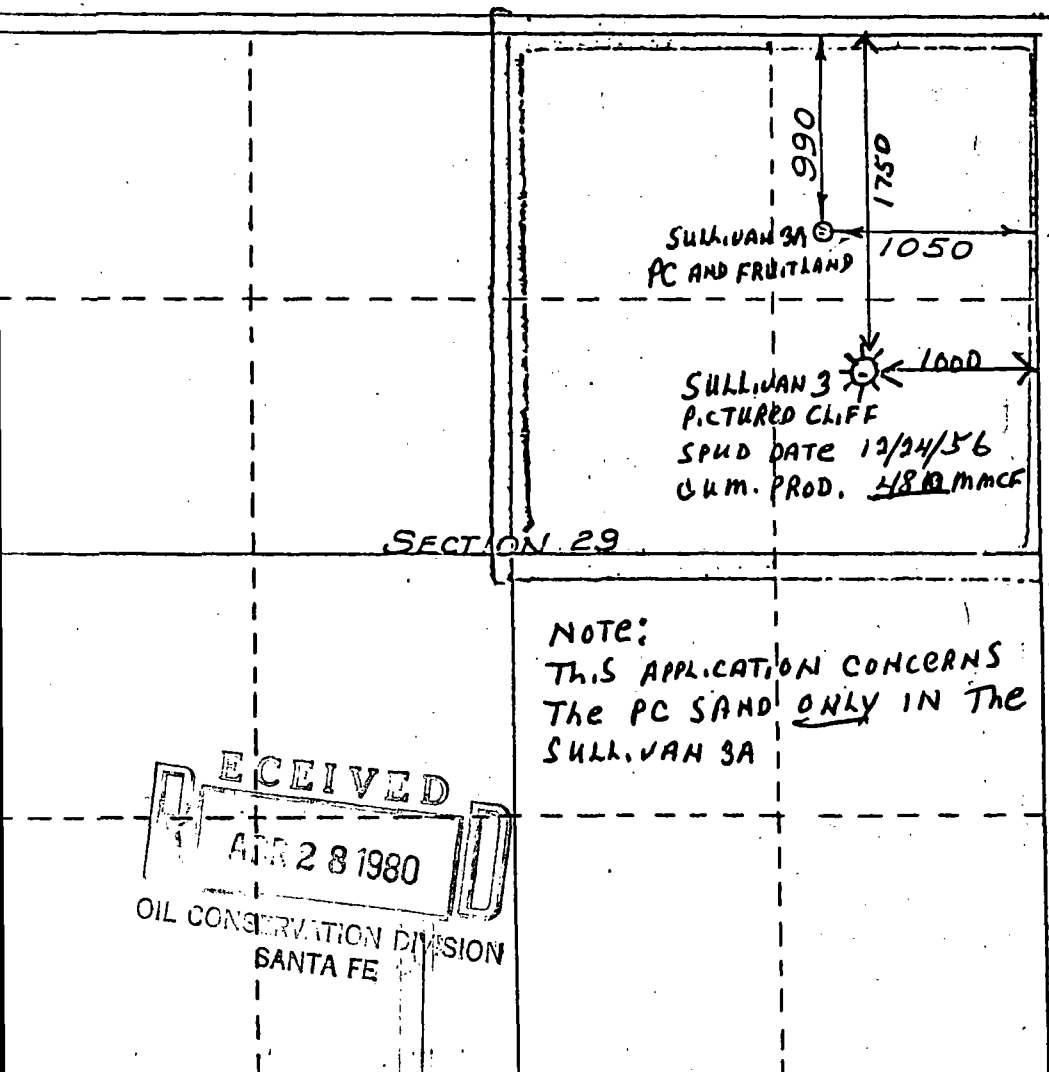 990
1750
SULLIVAN 3A
1050
PC AND FRUITLAND
1000
SULLIVAN 3
PICTURED CLIFF
SPUD DATE 12/24/56
CUM. PROD. MMCF
SECTION 29
NOTE:
THIS APPLICATION CONCERNS
The PC SAND ONLY IN The
SULLIVAN 3A
RECEIVED
APR 28 1980
OIL CONSERVATION DIVISION
SANTA FE